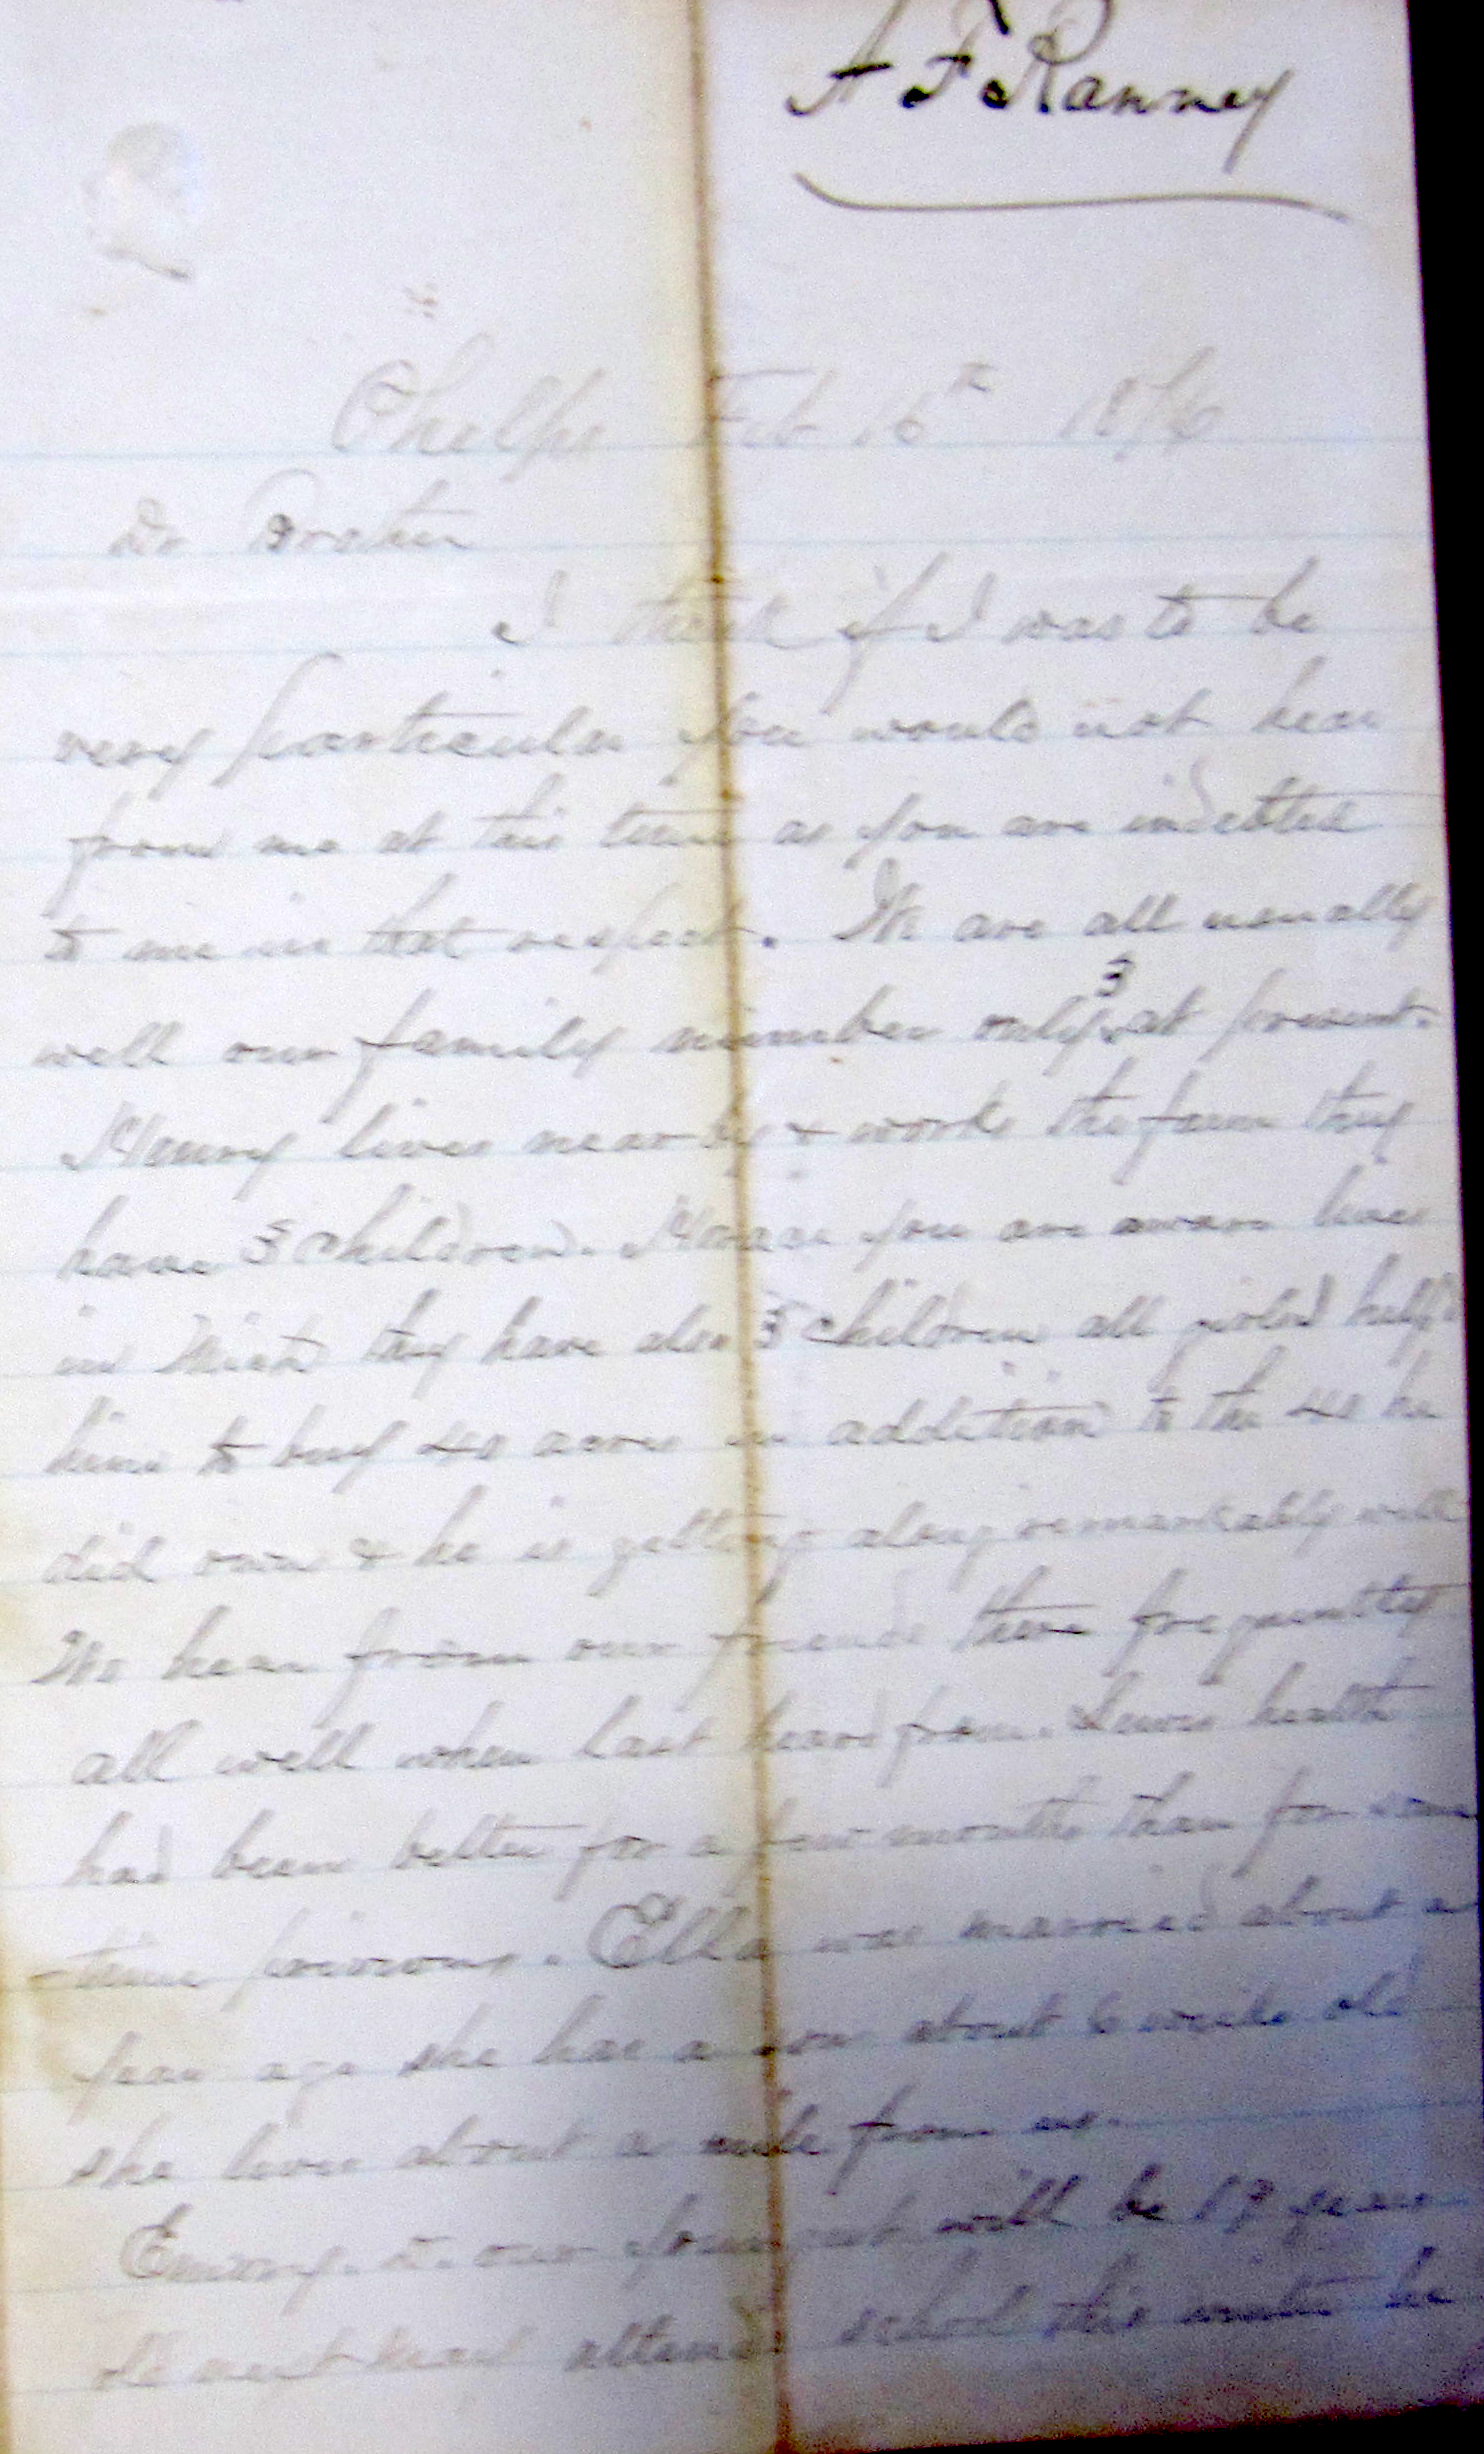 A F Ranney
Phelps Feb 16th 1876
Dr Brother
I think if I was to be
very particular you would not hear
from me at this time as you are indebted
to me in that respect. We are all usually
well our family number only 3 at present.
Henry lives near by & works the farm they
have 3 children. Horace you are aware lives
in Mich they have also 3 children all girls I help'd
him to buy 40 acres in addition to the 40 he
did own & he is getting along remarkably well
We hear from our friends there frequently
all well when last heard from. Lewis health
had been better for a few months than for some
time previous. Ella was married about a
year ago she has a son about 6 weeks old
she lives about a mile from us.
Emory. our youngest will be 19 years
old next attends school this winter he